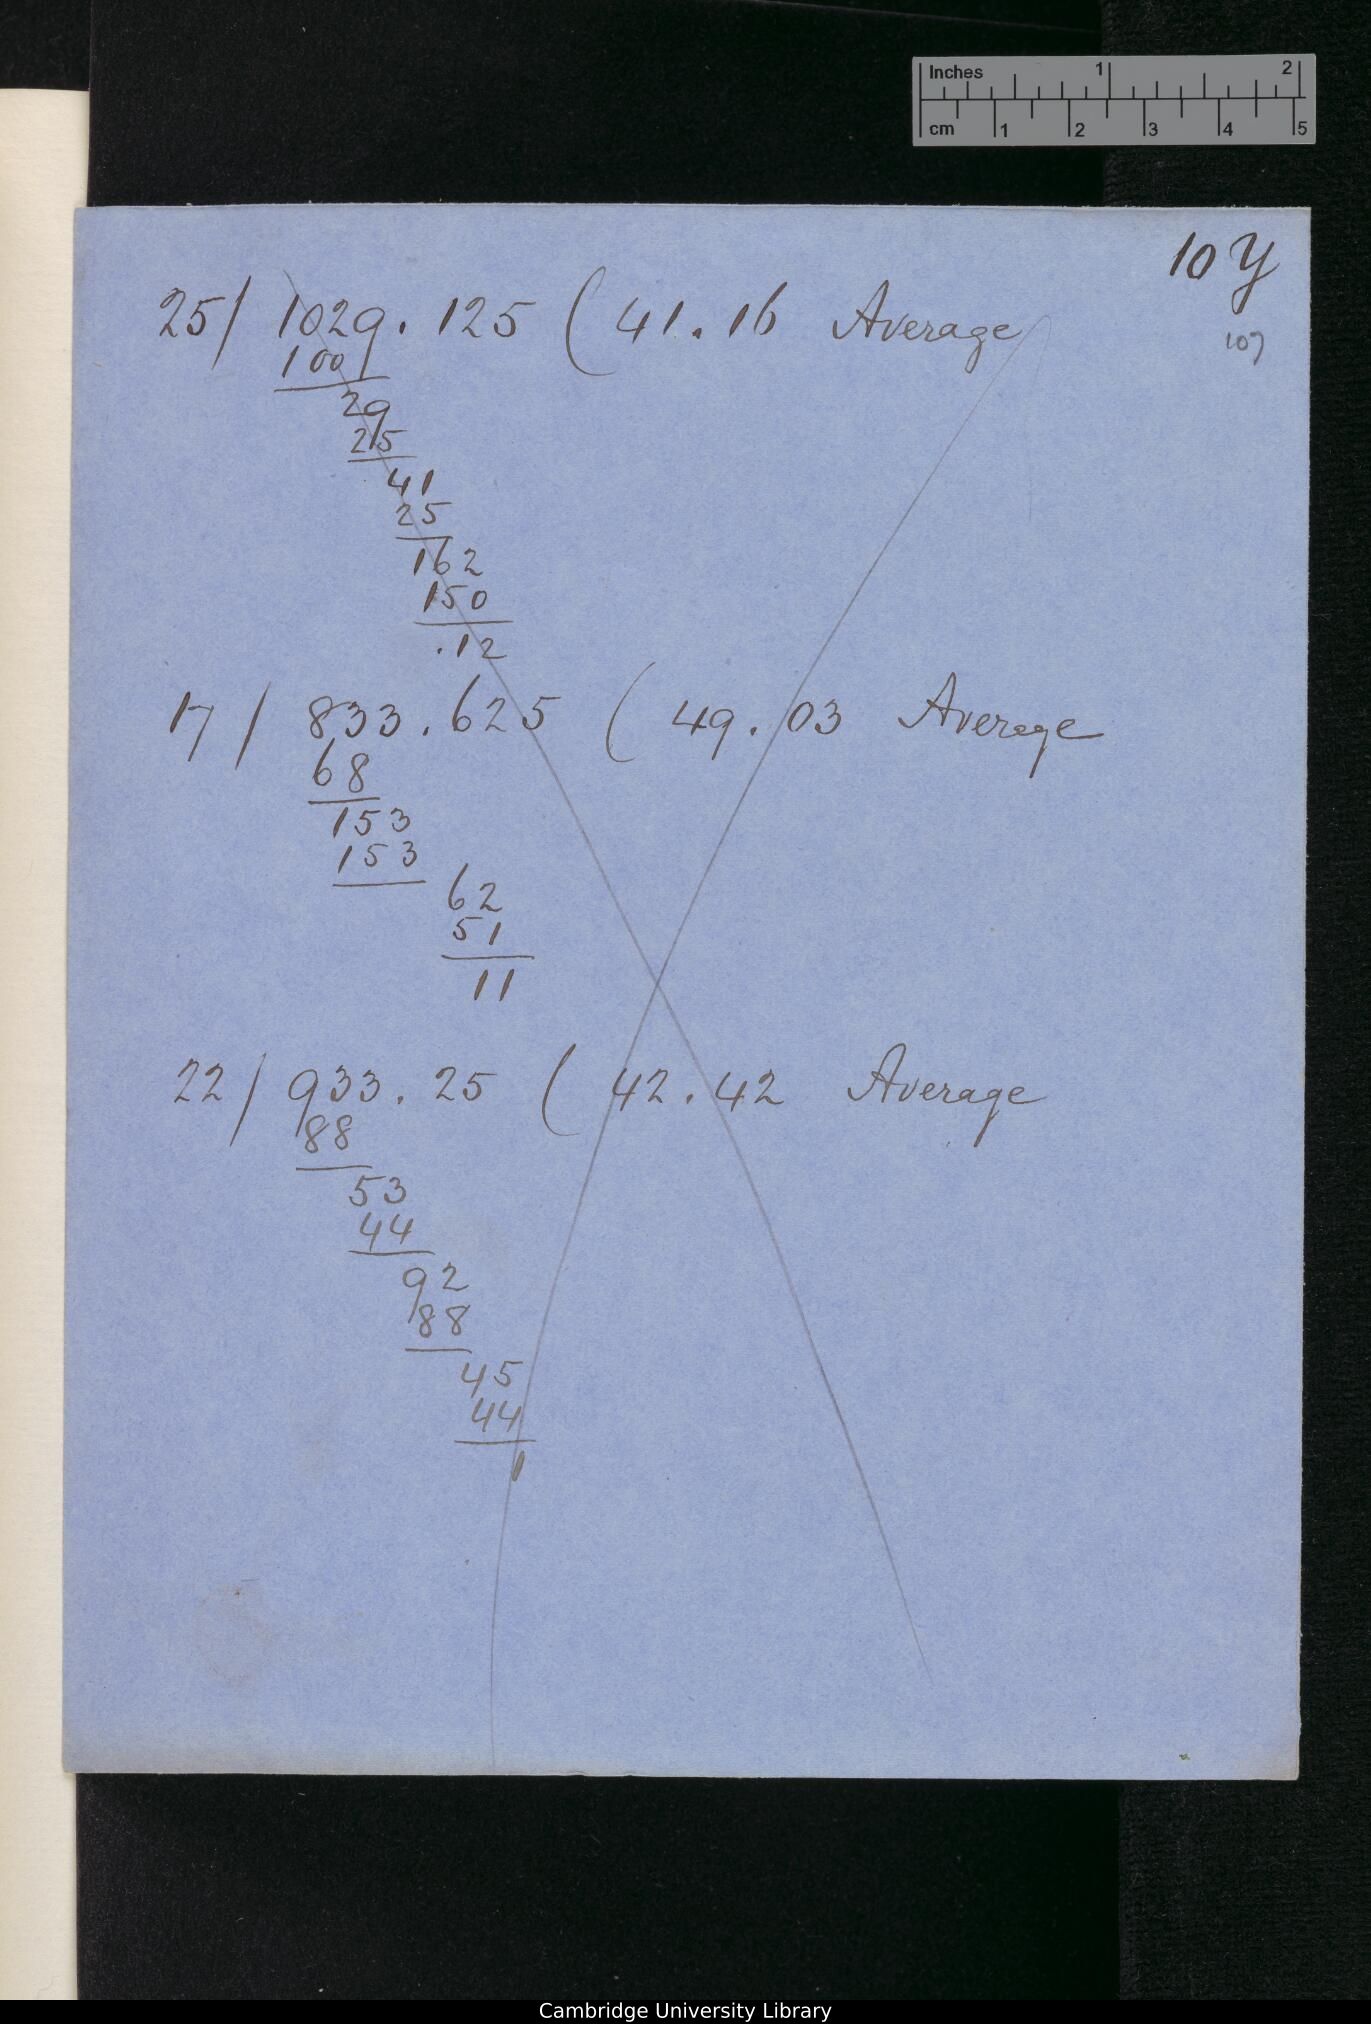 Inches 1 2
cm 1 2 3 4 5
10 Y
107
25/ 1029.125 ( 41.16 Average
100
29
25
41
25
162
150
.12
17 / 833.625 ( 49.03 Average
68
153
153
62
51
11
22 / 933.25 ( 42.42 Average
88
53
44
92
88
45
44
1
Cambridge University Library